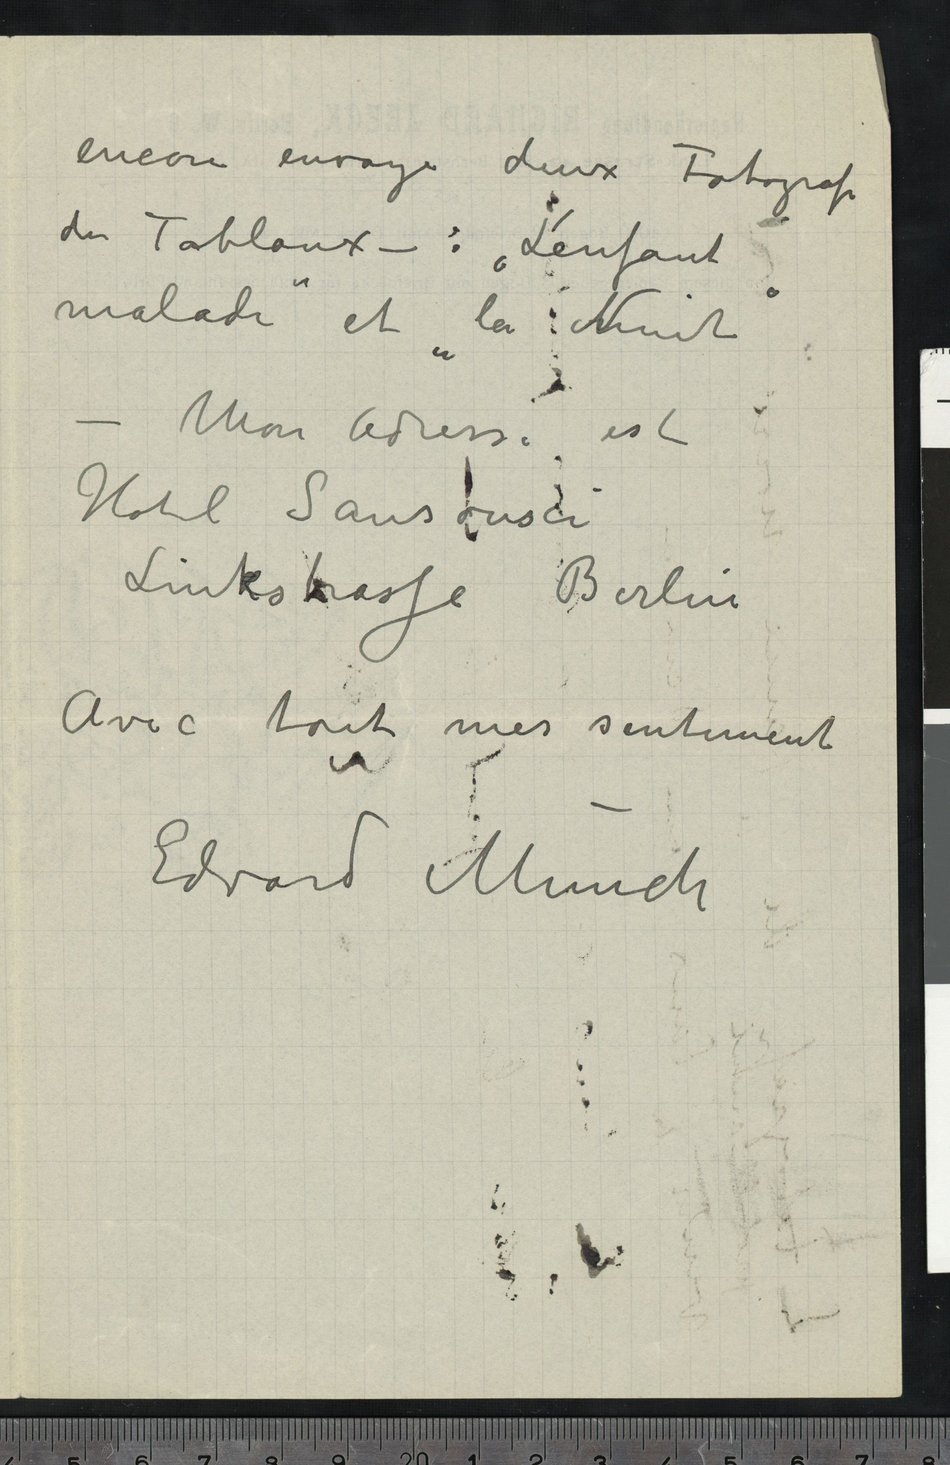 encore envoye deux Fotografi
des Tablaux – : „L'enfant
malade" et „la Nuit"
– Mon adresse est
Hotel Sansousci
Linkstrasse Berlin
Avec tout mes sentiment
Edvard Munch